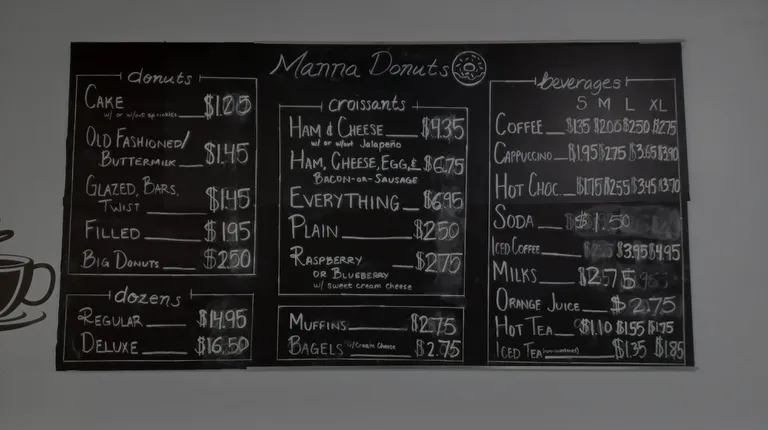 Manna Donuts
donuts
CAKE $1.25
w/ or w/out sprinkles
OLD FASHIONED/
BUTTERMILK $1.45
GLAZED, BARS,
TWIST $1.45
FILLED $1.95
BIG DONUTS $2.50
dozens
REGULAR $14.95
DELUXE $16.50
croissants
HAM & CHEESE $4.35
w/ or w/out Jalapeño
HAM, CHEESE, EGG, & $6.75
BACON-OR-SAUSAGE
EVERYTHING $6.95
PLAIN $2.50
RASPBERRY $2.75
OR BLUEBERRY
w/ sweet cream cheese
MUFFINS $2.75
BAGELS w/Cream Cheese $2.75
beverages
S M L XL
COFFEE $1.35 $2.00 $2.50 $2.75
CAPPUCCINO $1.95 $2.75 $3.65 $3.90
HOT CHOC. $1.75 $2.55 $3.45 $3.70
SODA $1.50
ICED COFFEE $3.95 $4.95
MILKS $2.75
ORANGE JUICE $2.75
HOT TEA $1.10 $1.55 $1.75
ICED TEA $1.35 $1.85